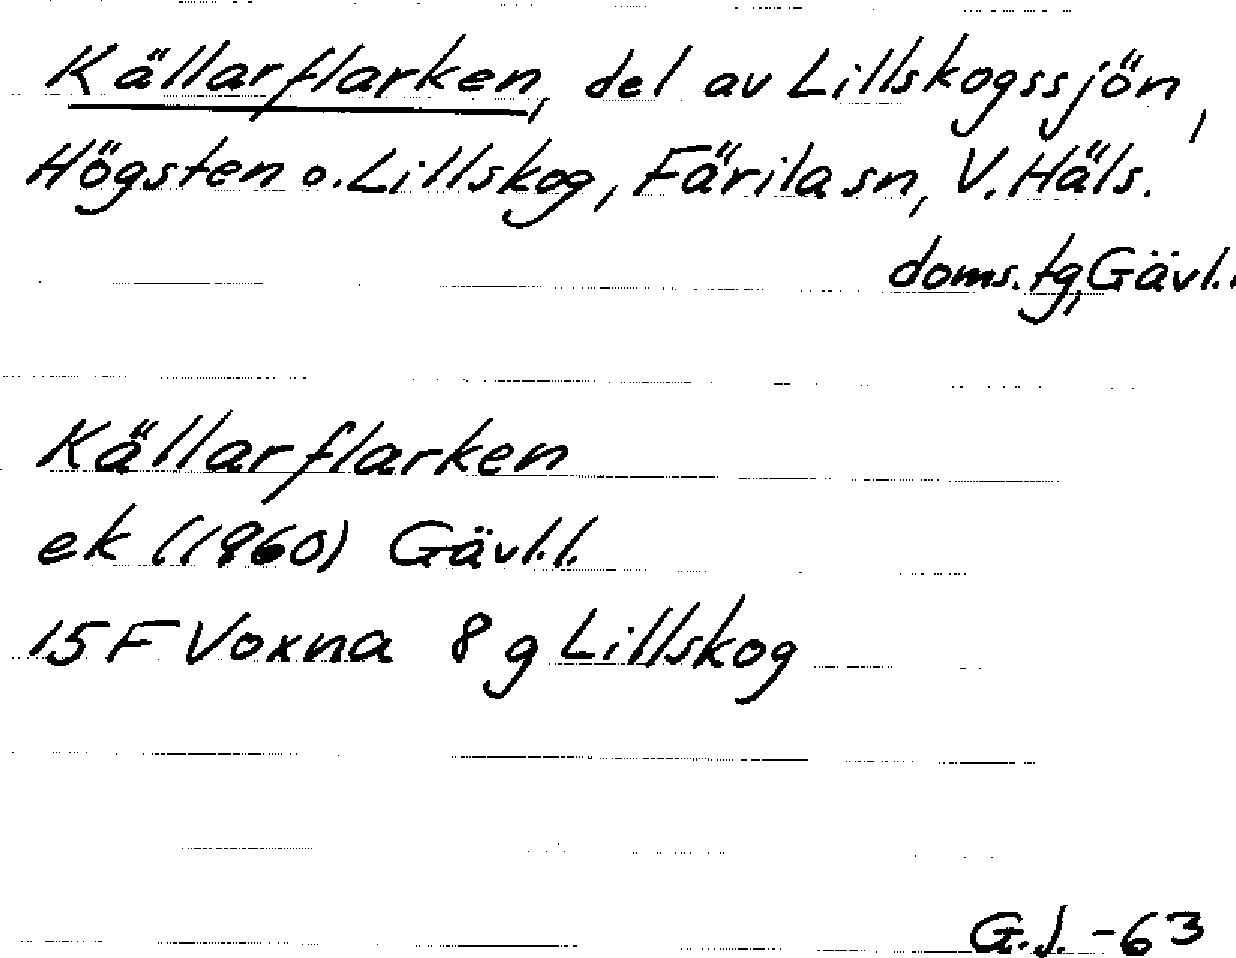 Källarflarken, del av Lillskogssjön,
Högsten o. Lillskog, Färila sn, V. Häls.
doms. tg, Gävl. l.
Källarflarken
ek (1960) Gävl. l.
15 F Voxna 8 g Lillskog
G.J. -63